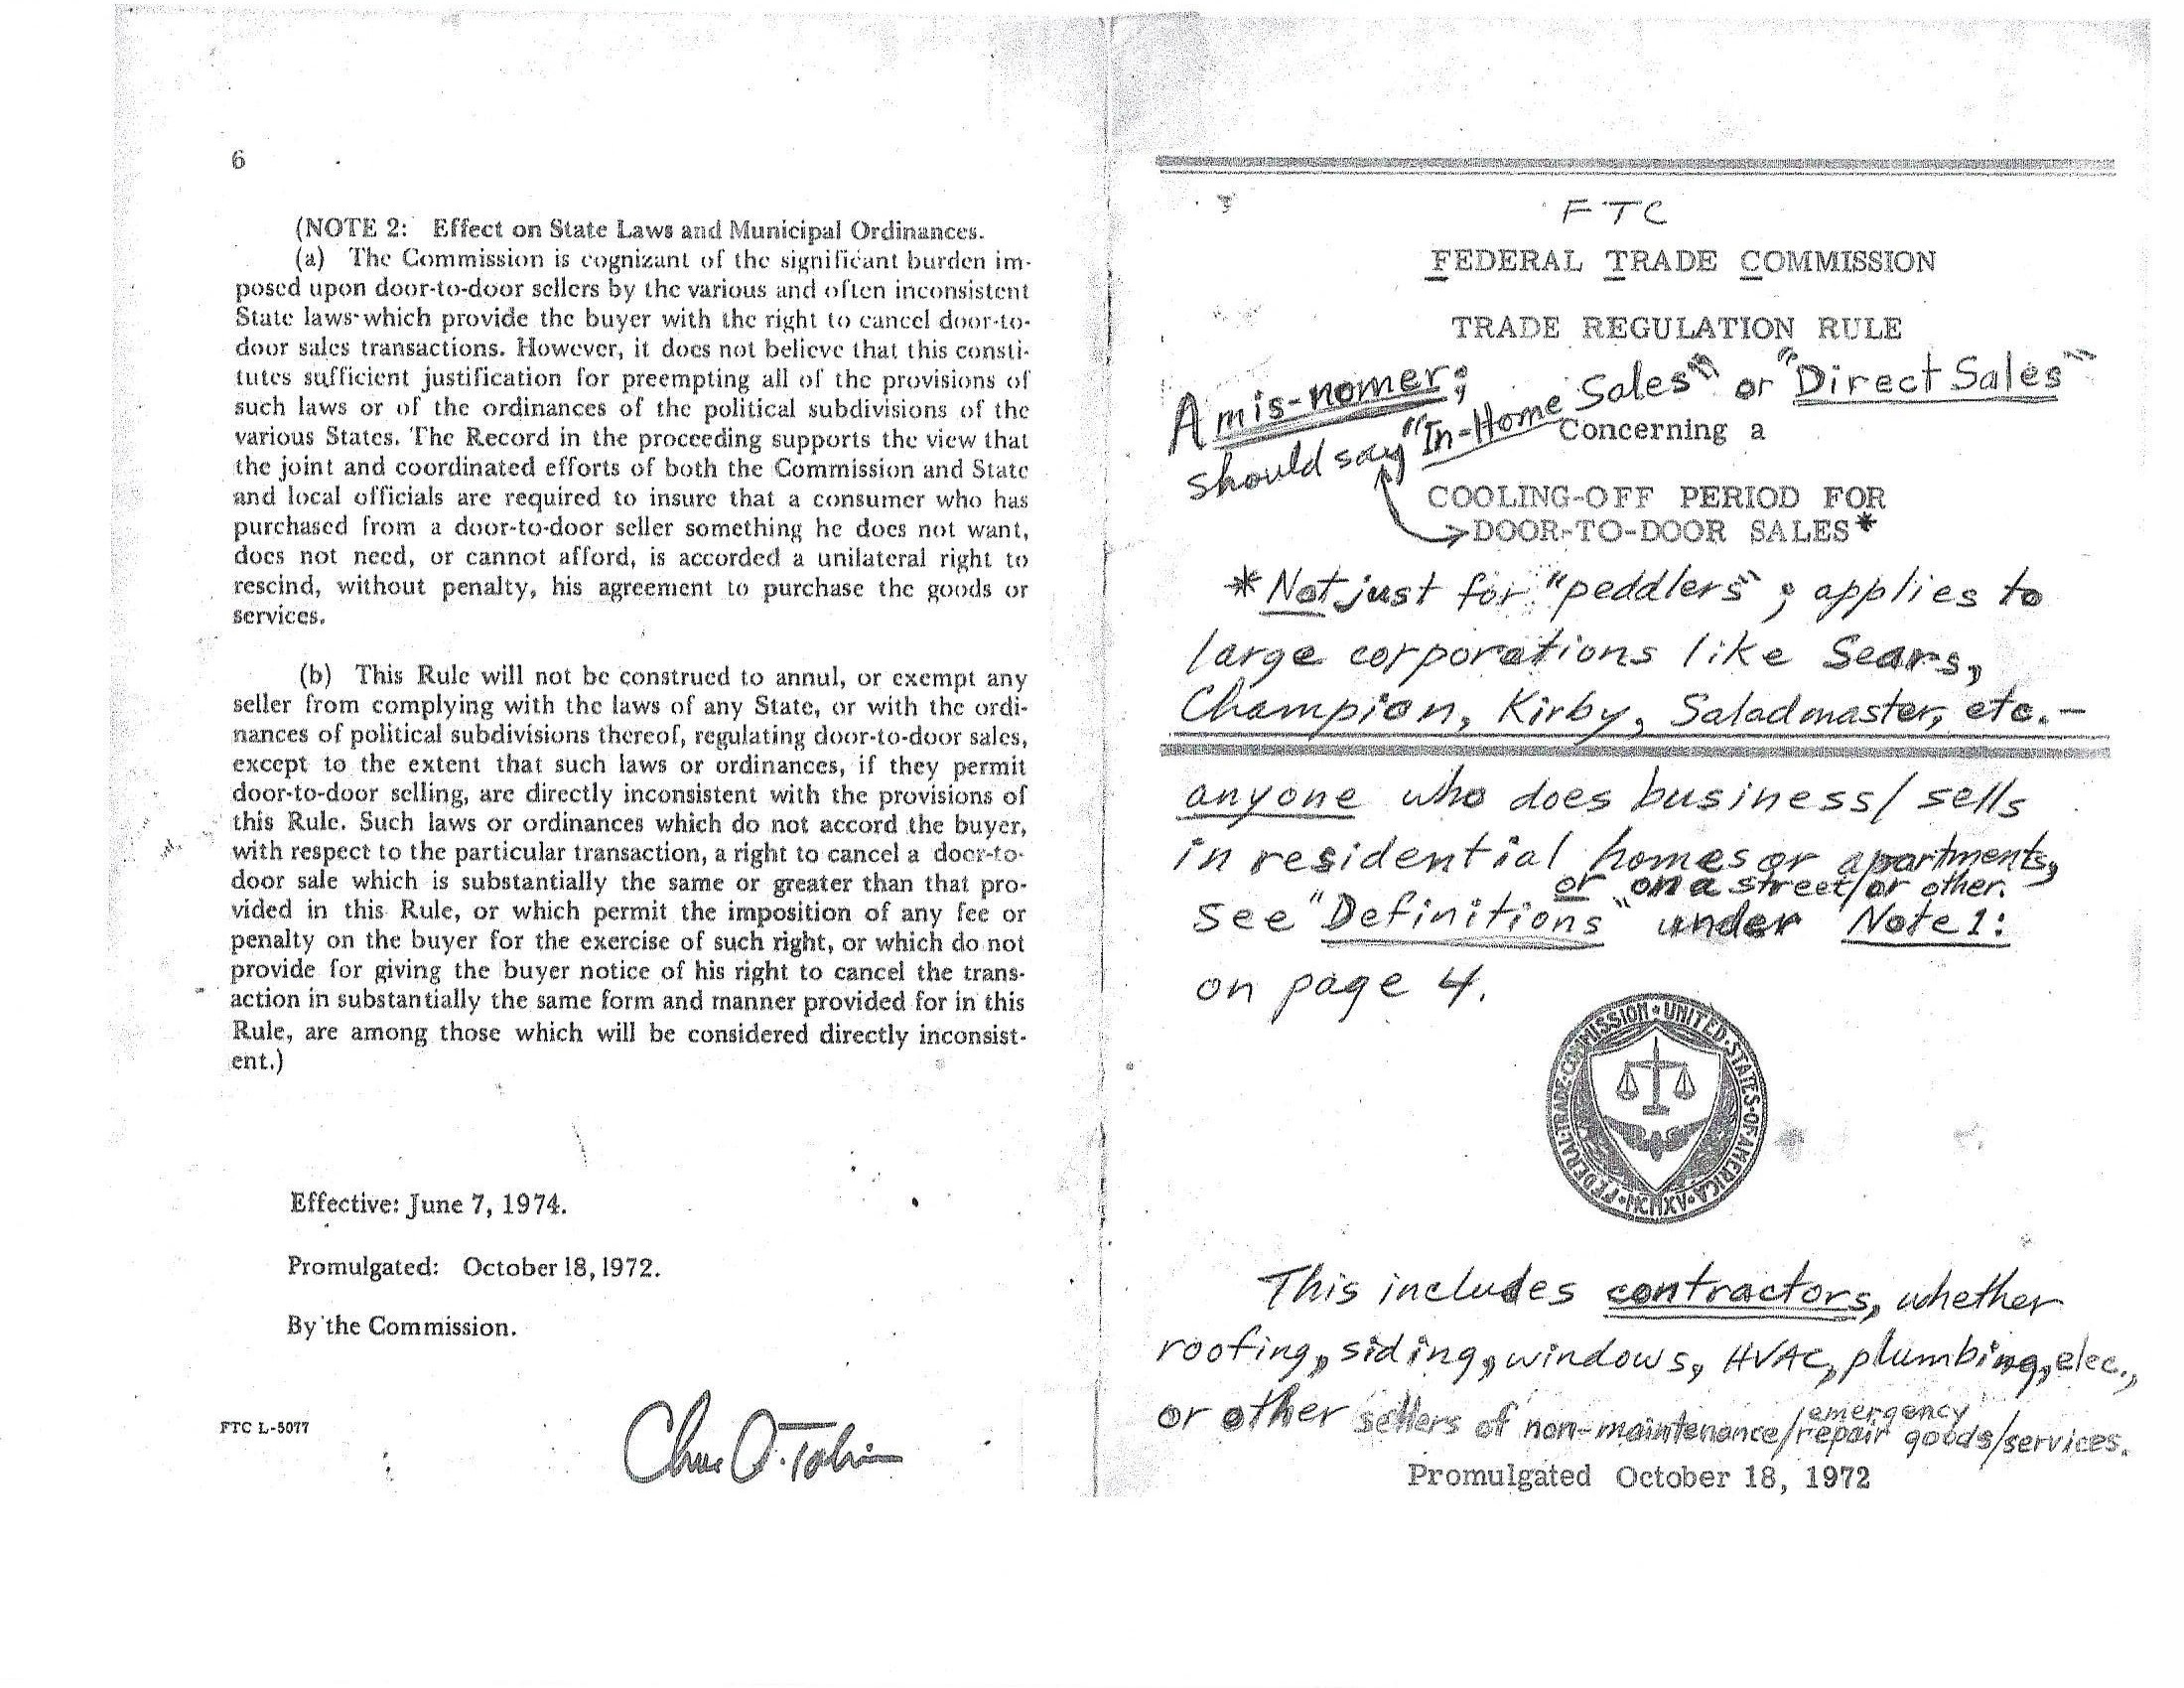 6
(NOTE 2: Effect on State Laws and Municipal Ordinances.
(a) The Commission is cognizant of the significant burden im-
posed upon door-to-door sellers by the various and often inconsistent
State laws which provide the buyer with the right to cancel door-to-
door sales transactions. However, it does not believe that this consti-
tutes sufficient justification for preempting all of the provisions of
such laws or of the ordinances of the political subdivisions of the
various States. The Record in the proceeding supports the view that
the joint and coordinated efforts of both the Commission and State
and local officials are required to insure that a consumer who has
purchased from a door-to-door seller something he does not want,
does not need, or cannot afford, is accorded a unilateral right to
rescind, without penalty, his agreement to purchase the goods or
services.
(b) This Rule will not be construed to annul, or exempt any
seller from complying with the laws of any State, or with the ordi-
nances of political subdivisions thereof, regulating door-to-door sales,
except to the extent that such laws or ordinances, if they permit
door-to-door selling, are directly inconsistent with the provisions of
this Rule. Such laws or ordinances which do not accord the buyer,
with respect to the particular transaction, a right to cancel a door-to-
door sale which is substantially the same or greater than that pro-
vided in this Rule, or which permit the imposition of any fee or
penalty on the buyer for the exercise of such right, or which do not
provide for giving the buyer notice of his right to cancel the trans-
action in substantially the same form and manner provided for in this
Rule, are among those which will be considered directly inconsist-
ent.)
Effective: June 7, 1974.
Promulgated: October 18, 1972.
By the Commission.
FTC L-5077
FTC
FEDERAL TRADE COMMISSION
TRADE REGULATION RULE
A mis-nomer;
should say "In-Home Sales" or "Direct Sales"
Concerning a
COOLING-OFF PERIOD FOR
DOOR-TO-DOOR SALES*
*Not just for "peddlers"; applies to
large corporations like Sears,
Champion, Kirby, Saladmaster, etc.-
anyone who does business/sells
in residential homes or apartments,
or on a street/or other.
see "Definitions" under Note 1:
on page 4.
FEDERAL·TRADE·COMMISSION·UNITED·STATES·OF·AMERICA·MCMXV
This includes contractors, whether
roofing, siding, windows, HVAC, plumbing, elec.,
or other sellers of non-maintenance/emergency repair goods/services.
Promulgated October 18, 1972